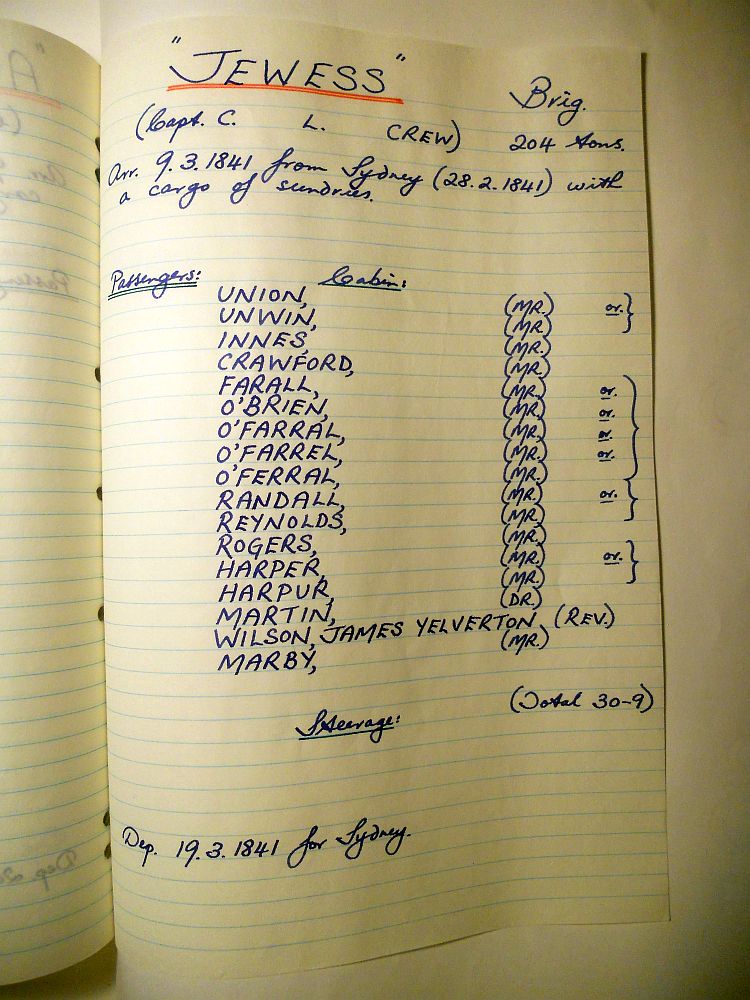 "JEWESS" Brig.
(Capt. C. L. CREW) 204 tons.
Arr. 9.3.1841 from Sydney (28.2.1841) with
a cargo of sundries.
Passengers: Cabin:
UNION, (MR.) or.
UNWIN, (MR.)
INNES, (MR.)
CRAWFORD, (MR.)
FARALL, (MR.) or.
O'BRIEN, (MR.) or.
O'FARRAL, (MR.) or.
O'FARREL, (MR.) or.
O'FERRAL, (MR.)
RANDALL, (MR.) or.
REYNOLDS, (MR.)
ROGERS, (MR.)
HARPER, (MR.) or.
HARPUR, (MR.)
MARTIN, (DR.)
WILSON, JAMES YELVERTON (REV.)
MARBY, (MR.)
(Total 30-9)
Steerage:
Dep. 19.3.1841 for Sydney.